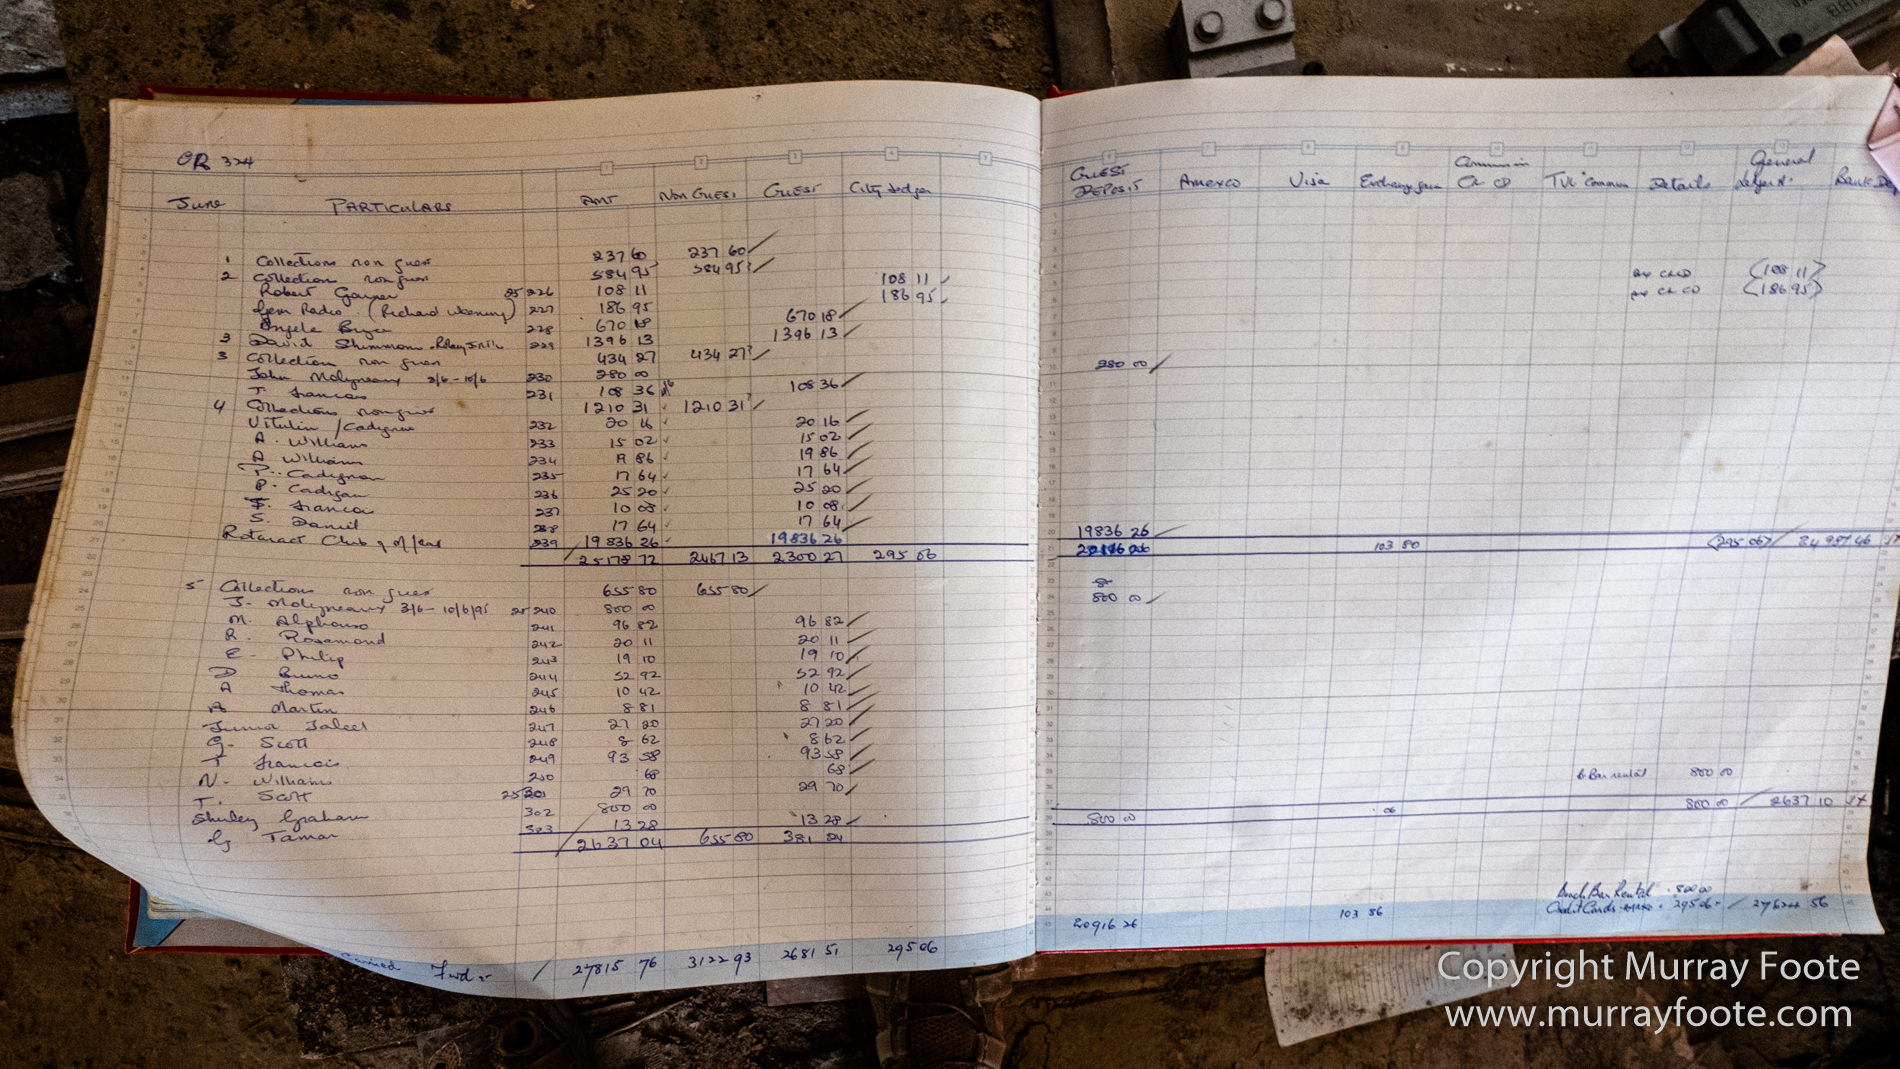 OR 324
June PARTICULARS AMT Non GUEST GUEST City Ledger GUEST DEPOSIT Amexco Visa Exchange gain Commission CR CD TVL Commn Details General Ledger A/c
1 Collections non guest 237 60 237 60
2 Collection non guest 584 95 584 95
Robert 25 226 108 11 108 11 CR CD <108 11>
Gem Radio (Richard) 227 186 95 186 95 CR CD <186 95>
Angela 228 670 18 670 18
3 David 229 1396 13 1396 13
3 Collection non guest 434 27 434 27
John Molyneaux 3/6 - 10/6 230 280 00 280 00
T. Francois 231 108 36 108 36
4 Collections non guest 1210 31 1210 31
232 20 16 20 16
A. Williams 233 15 02 15 02
A Williams 234 86 19 86
P. 235 17 64 17 64
P. 236 25 20 25 20
Francois 237 10 08 10 08
S. Daniel 238 17 64 17 64
Rotaract Club 239 19836 26 19836 26 19836 26
25178 72 2467 13 2300 27 295 06 103 80 <295 06> 24987 46
5 Collections non guest 655 80 655 80
J. Molyneaux 3/6 - 10/6/95 25 240 800 00 800 00
M. Alphonso 241 96 82 96 82
R. Rosemond 242 20 11 20 11
E. Philip 243 19 10 19 10
D Bruno 244 52 92 52 92
A Thomas 245 10 42 10 42
Martin 246 8 81 8 81
Junior 247 27 20 27 20
G. Scott 248 8 62 8 62
T Francois 249 93 58 93 58
N. Williams 250 68 68
T. Scott 29 70 29 70 Bar rental 800 00
Shirley Graham 302 800 00
G Tamar 303 13 28 13 28
2637 04 655 80 381 24 800 00 06 800 00 2637 10
Beach Bar Rental 800 00
Credit Cards 295 06
Carried Fwd 27815 76 3122 93 2681 51 295 06 20916 26 103 86 56
Copyright Murray Foote
www.murrayfoote.com